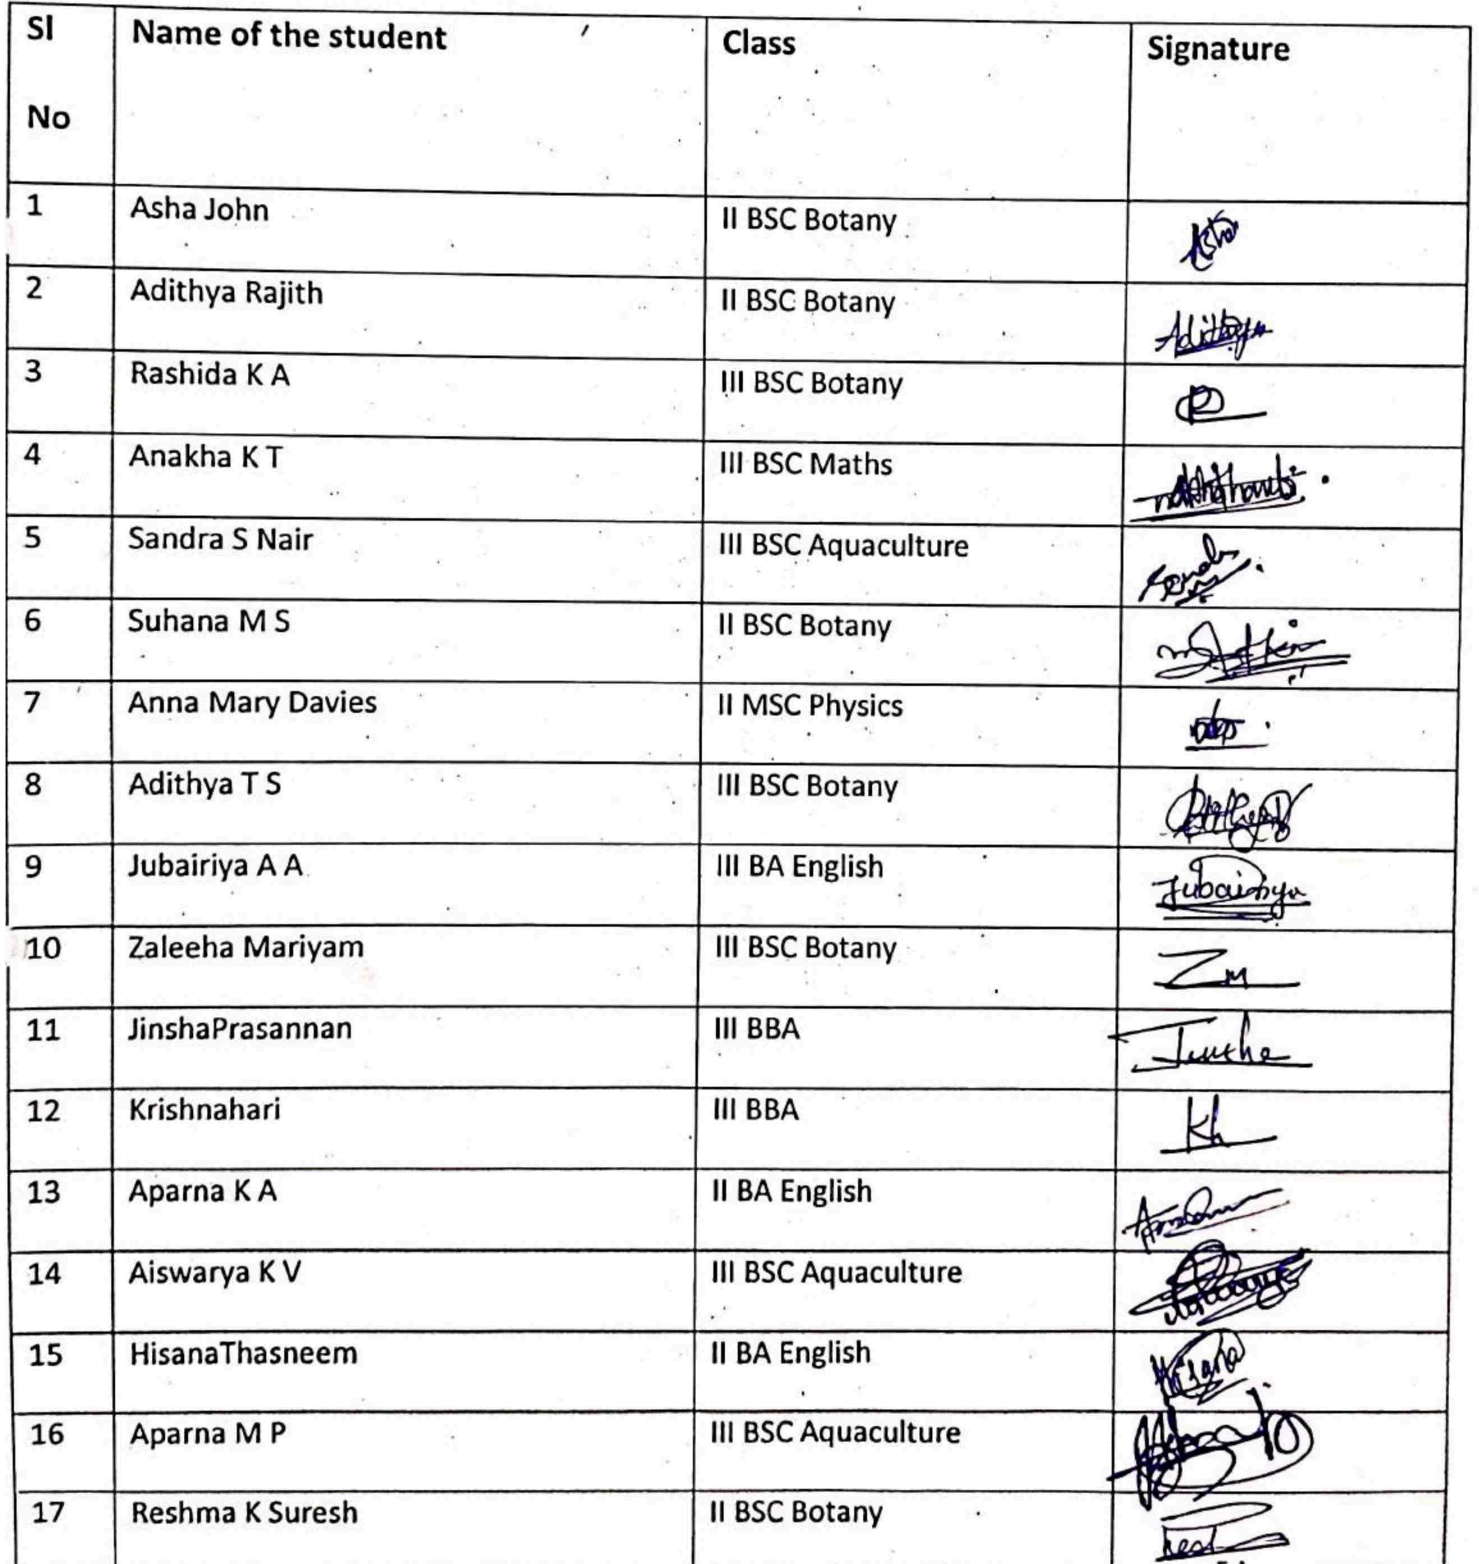 Sl No Name of the student Class Signature
1 Asha John II BSC Botany Asha
2 Adithya Rajith II BSC Botany Adithya
3 Rashida K A III BSC Botany R
4 Anakha K T III BSC Maths
5 Sandra S Nair III BSC Aquaculture
6 Suhana M S II BSC Botany
7 Anna Mary Davies II MSC Physics
8 Adithya T S III BSC Botany Adithya
9 Jubairiya A A III BA English Jubairiya
10 Zaleeha Mariyam III BSC Botany ZM
11 JinshaPrasannan III BBA
12 Krishnahari III BBA Kh
13 Aparna K A II BA English
14 Aiswarya K V III BSC Aquaculture
15 HisanaThasneem II BA English Hisana
16 Aparna M P III BSC Aquaculture
17 Reshma K Suresh II BSC Botany